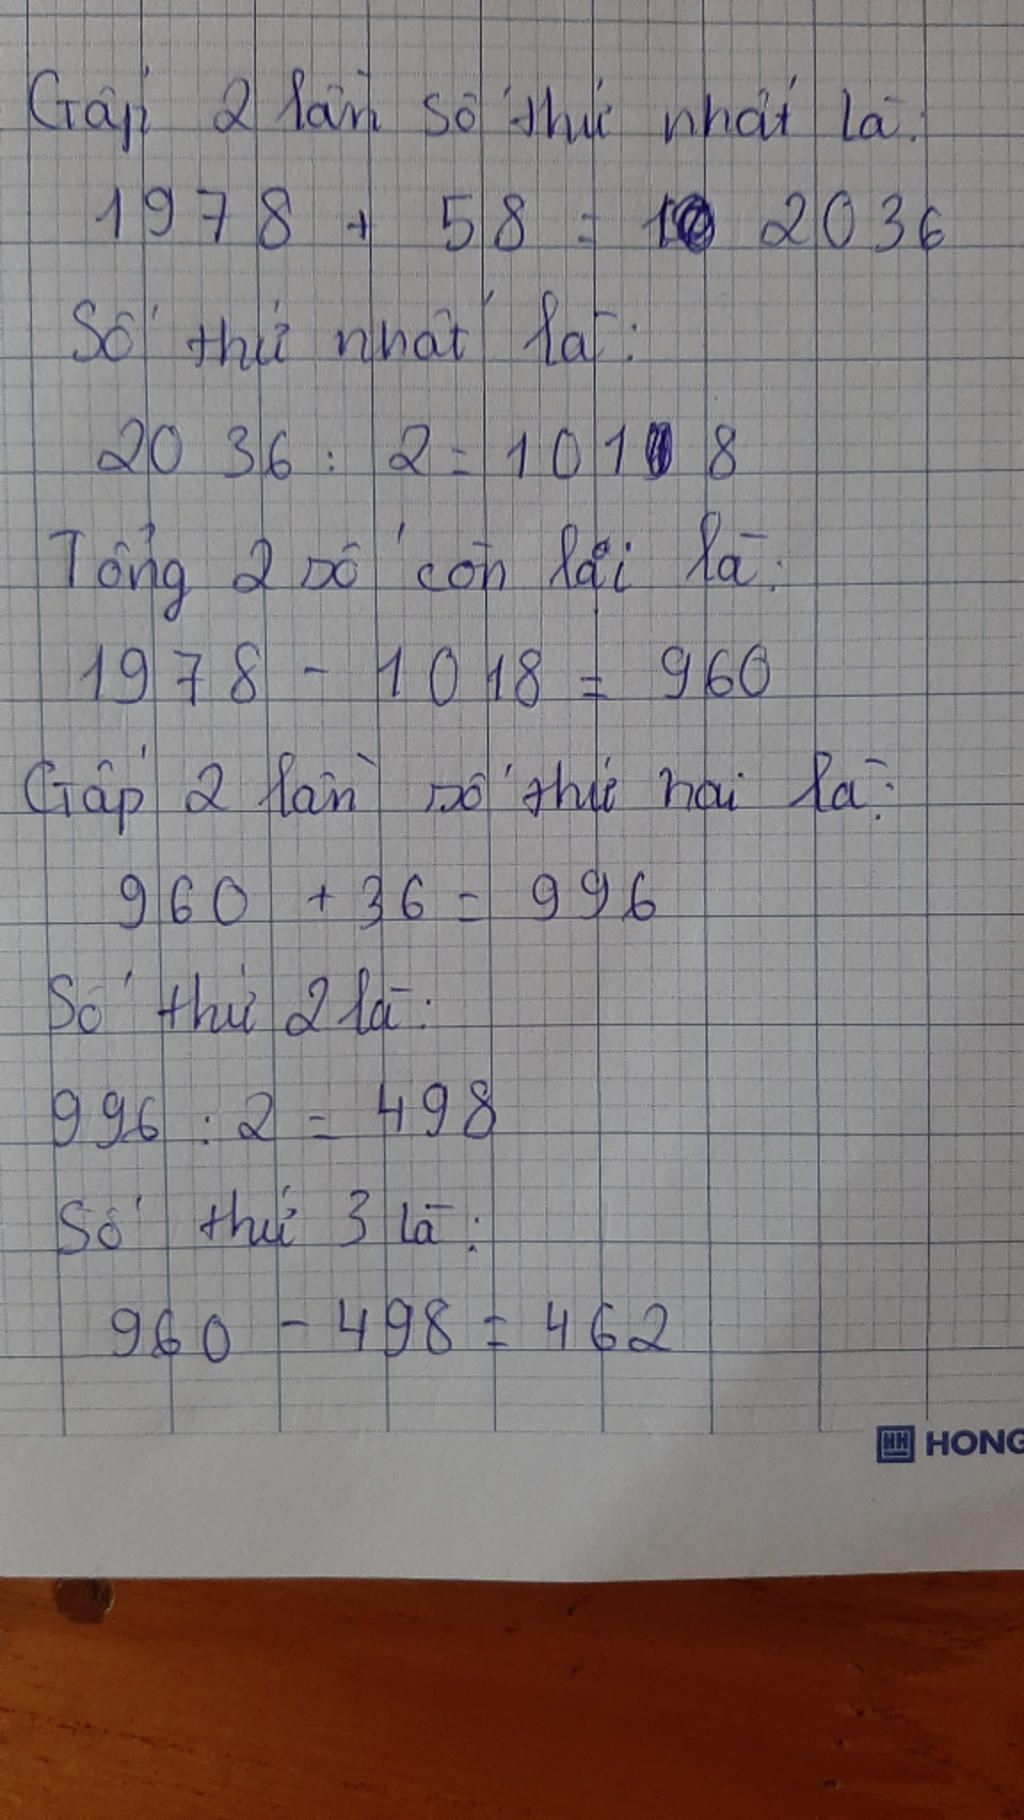 Gấp 2 lần số thứ nhất là:
1978 + 58 = 2036
Số thứ nhất là:
2036 : 2 = 1018
Tổng 2 số còn lại là:
1978 - 1018 = 960
Gấp 2 lần số thứ hai là:
960 + 36 = 996
Số thứ 2 là:
996 : 2 = 498
Số thứ 3 là:
960 - 498 = 462
HH HONG